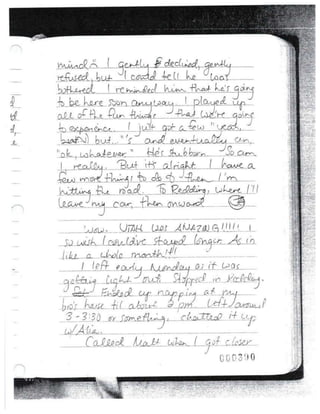 mind. I gently declined, gently
refused, but I could tell he was
bothered. I reminded him that he's going
to be here soon anyway. I played up
all of the fun things that we're going
to experience. I just got a few "yeah,
but..."'s and eventually an,
"ok, whatever." He's stubborn. So am
I, really. But it's alright. I have a
few more things to do & then I'm
hitting the road. To Redding, where I'll
leave my car, then onward
Wow. UTAH WAS AMAZING!!!!! I
so wish I could've stayed longer. As in
like a whole month!!!
I left early Monday as it was
getting light out. Stopped in
Ended up napping at my
bro's house til about 2 pm. Left around
3-3:30 or something. Chatted it up
w/
Called Matt when I got closer
000390